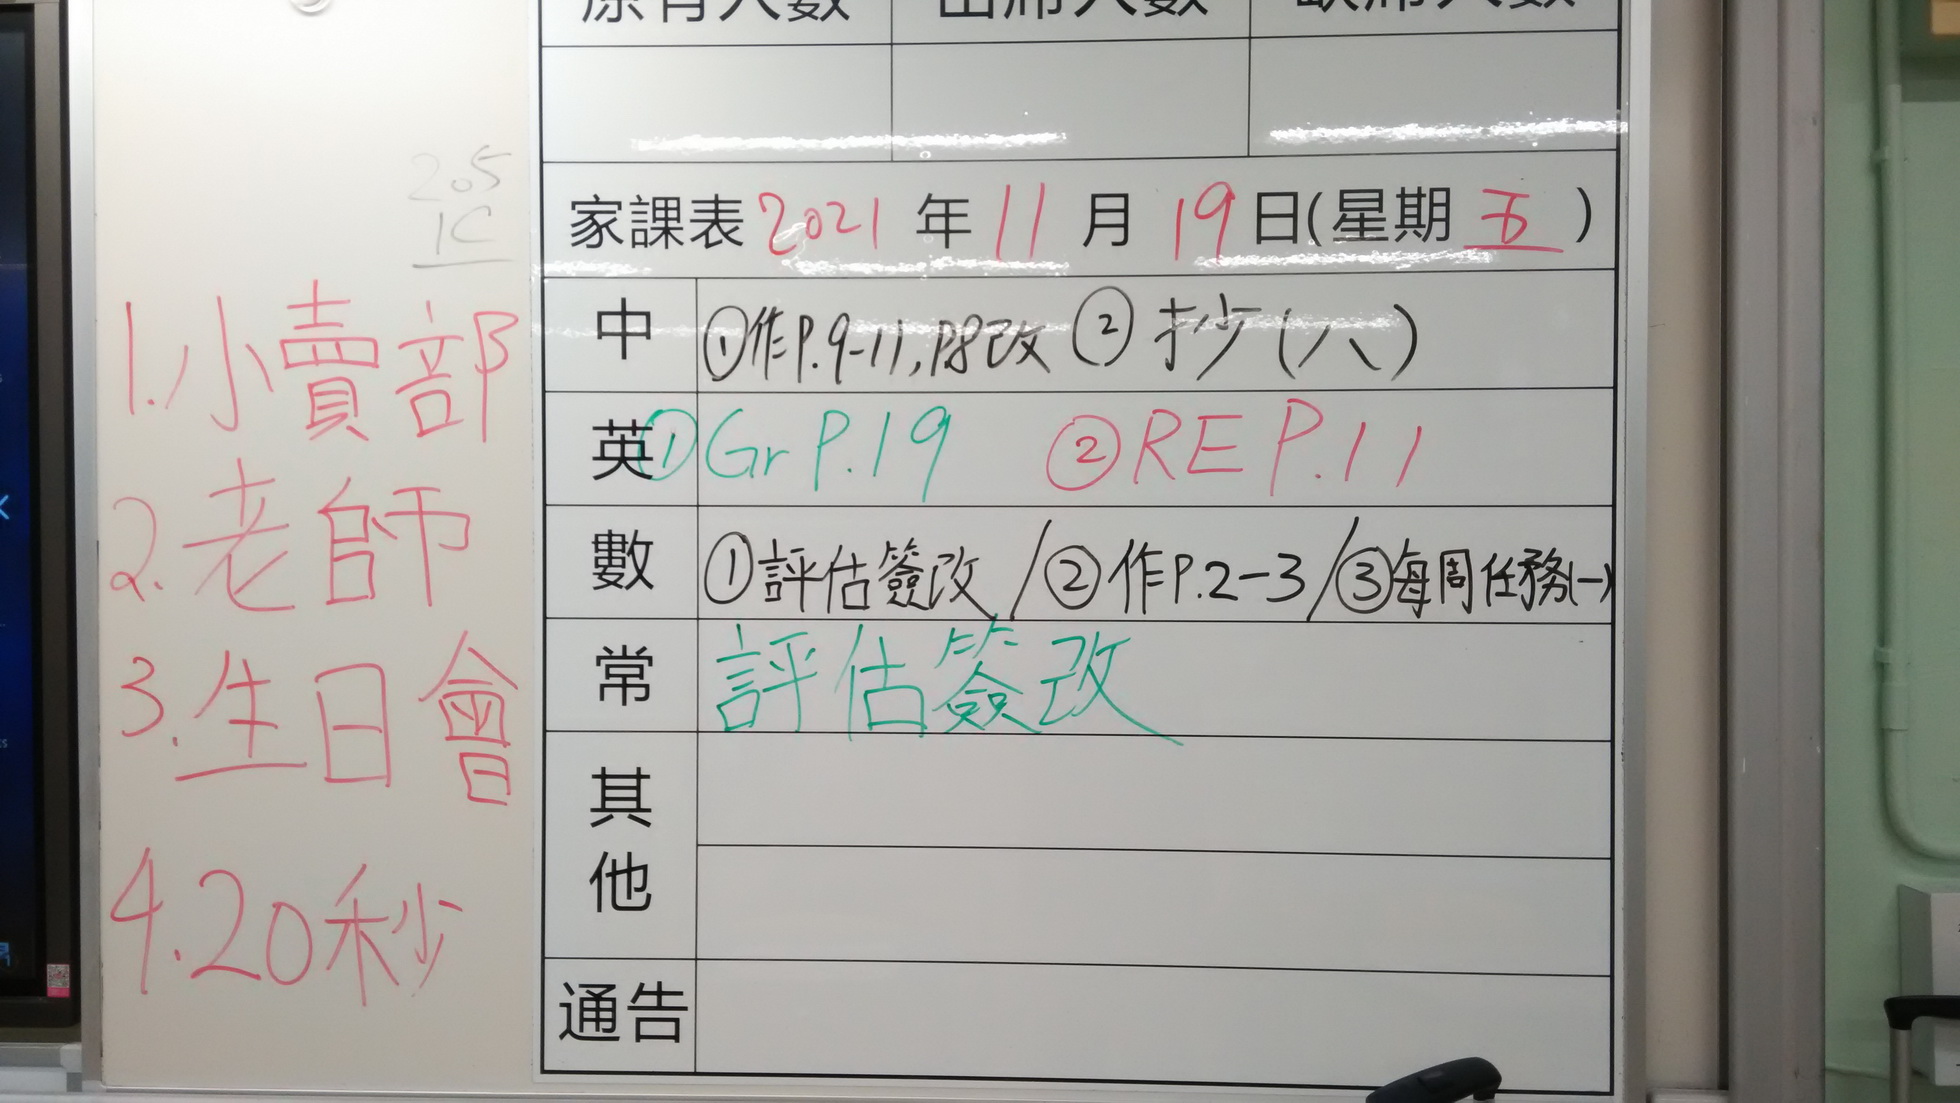 原有人數 出席人數 缺席人數
家課表 2021 年 11 月 19 日(星期 五 )
中 ①作P.9-11,P8改 ②抄(八)
英 ①Gr P.19 ②RE P.11
數 ①評估簽改/②作P.2-3/③每周任務(一)
常 評估簽改
其他
通告
205
1C
1.小賣部
2.老師
3.生日會
4.20秒